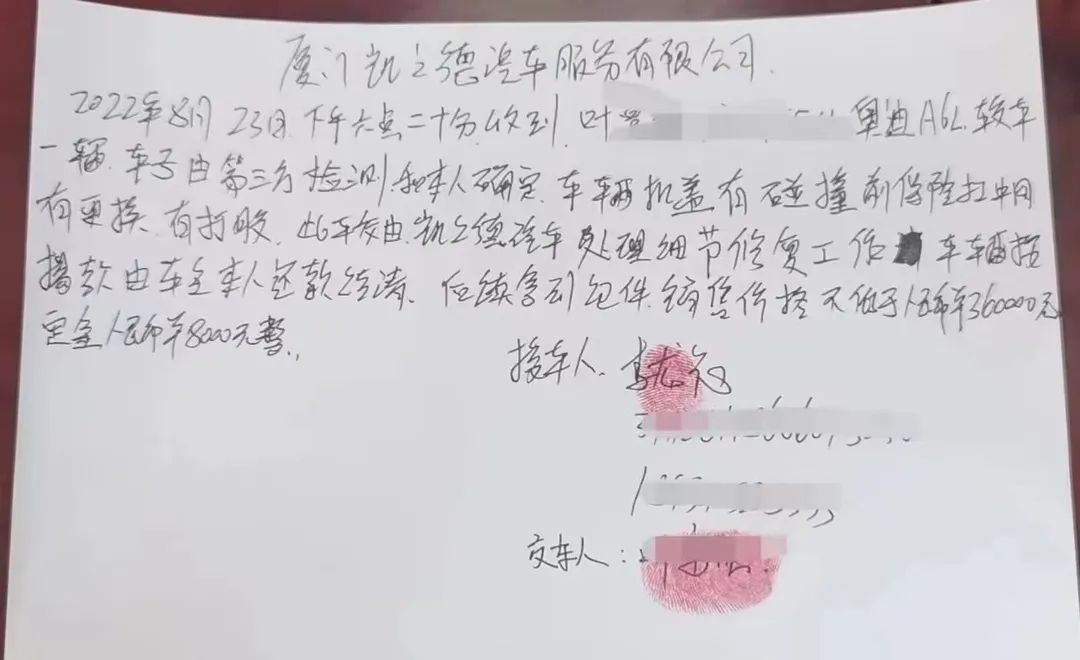 厦门凯之德汽车服务有限公司.
2022年8月23日下午六点二十分收到 叶 奥迪A6L轿车
一辆.车号由第三方检测和本人确定.车辆机盖有碰撞前保险杠中网
有更换.有打胶.此车交由凯之德汽车处理细节修复工作 车辆按
揭款由车主本人还款结清.后续 包件.销售价格不低于人民币360000元
定金人民币8000元整.
接车人. 李龙
交车人: